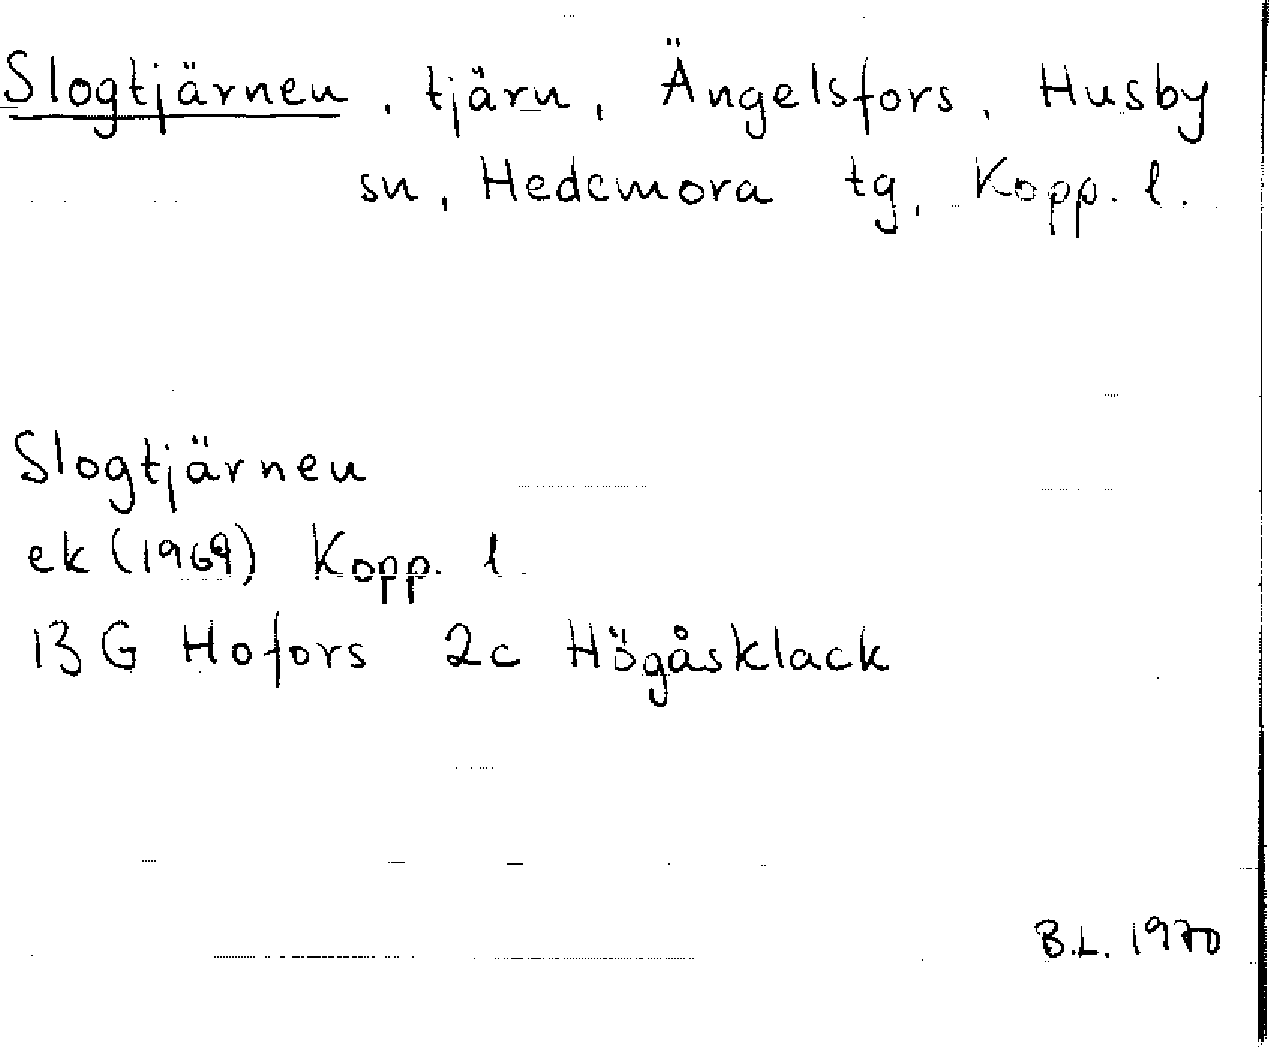 Slogtjärnen, tjärn, Ängelsfors, Husby
sn, Hedemora tg, Kopp. l.
Slogtjärnen
ek (1969) Kopp. l.
13 G Hofors 2c Högåsklack
B.L. 1970